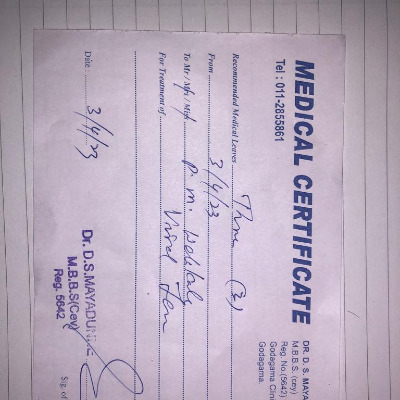 MEDICAL CERTIFICATE
Tel : 011-2855861
DR. D. S. MAYA
M.B.B.S. (cey)
Reg. No.(5642)
Godagama Clin
Godagama.
Recommended Medical Leaves Three (3)
From 3/4/23
To Mr / Mrs / Miss P. M.
For Treatment of Viral
Date : 3/4/23
Dr. D.S.MAYADUNNE
M.B.B.S(Cey)
Reg. 5642
Sig. of